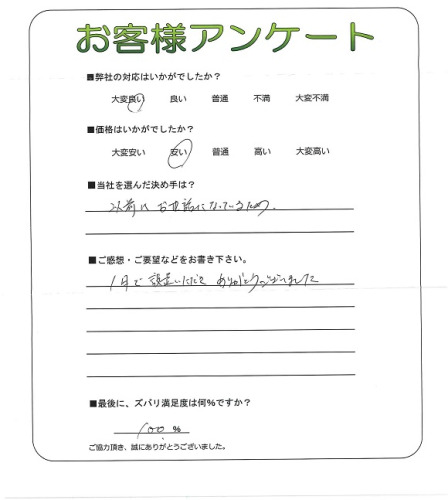 お客様アンケート
■弊社の対応はいかがでしたか？
大変良い 良い 普通 不満 大変不満
■価格はいかがでしたか？
大変安い 安い 普通 高い 大変高い
■当社を選んだ決め手は？
以前にお世話になっているため。
■ご感想・ご要望などをお書き下さい。
いただき ありがとうございました
■最後に、ズバリ満足度は何%ですか？
100 %
ご協力頂き、誠にありがとうございました。